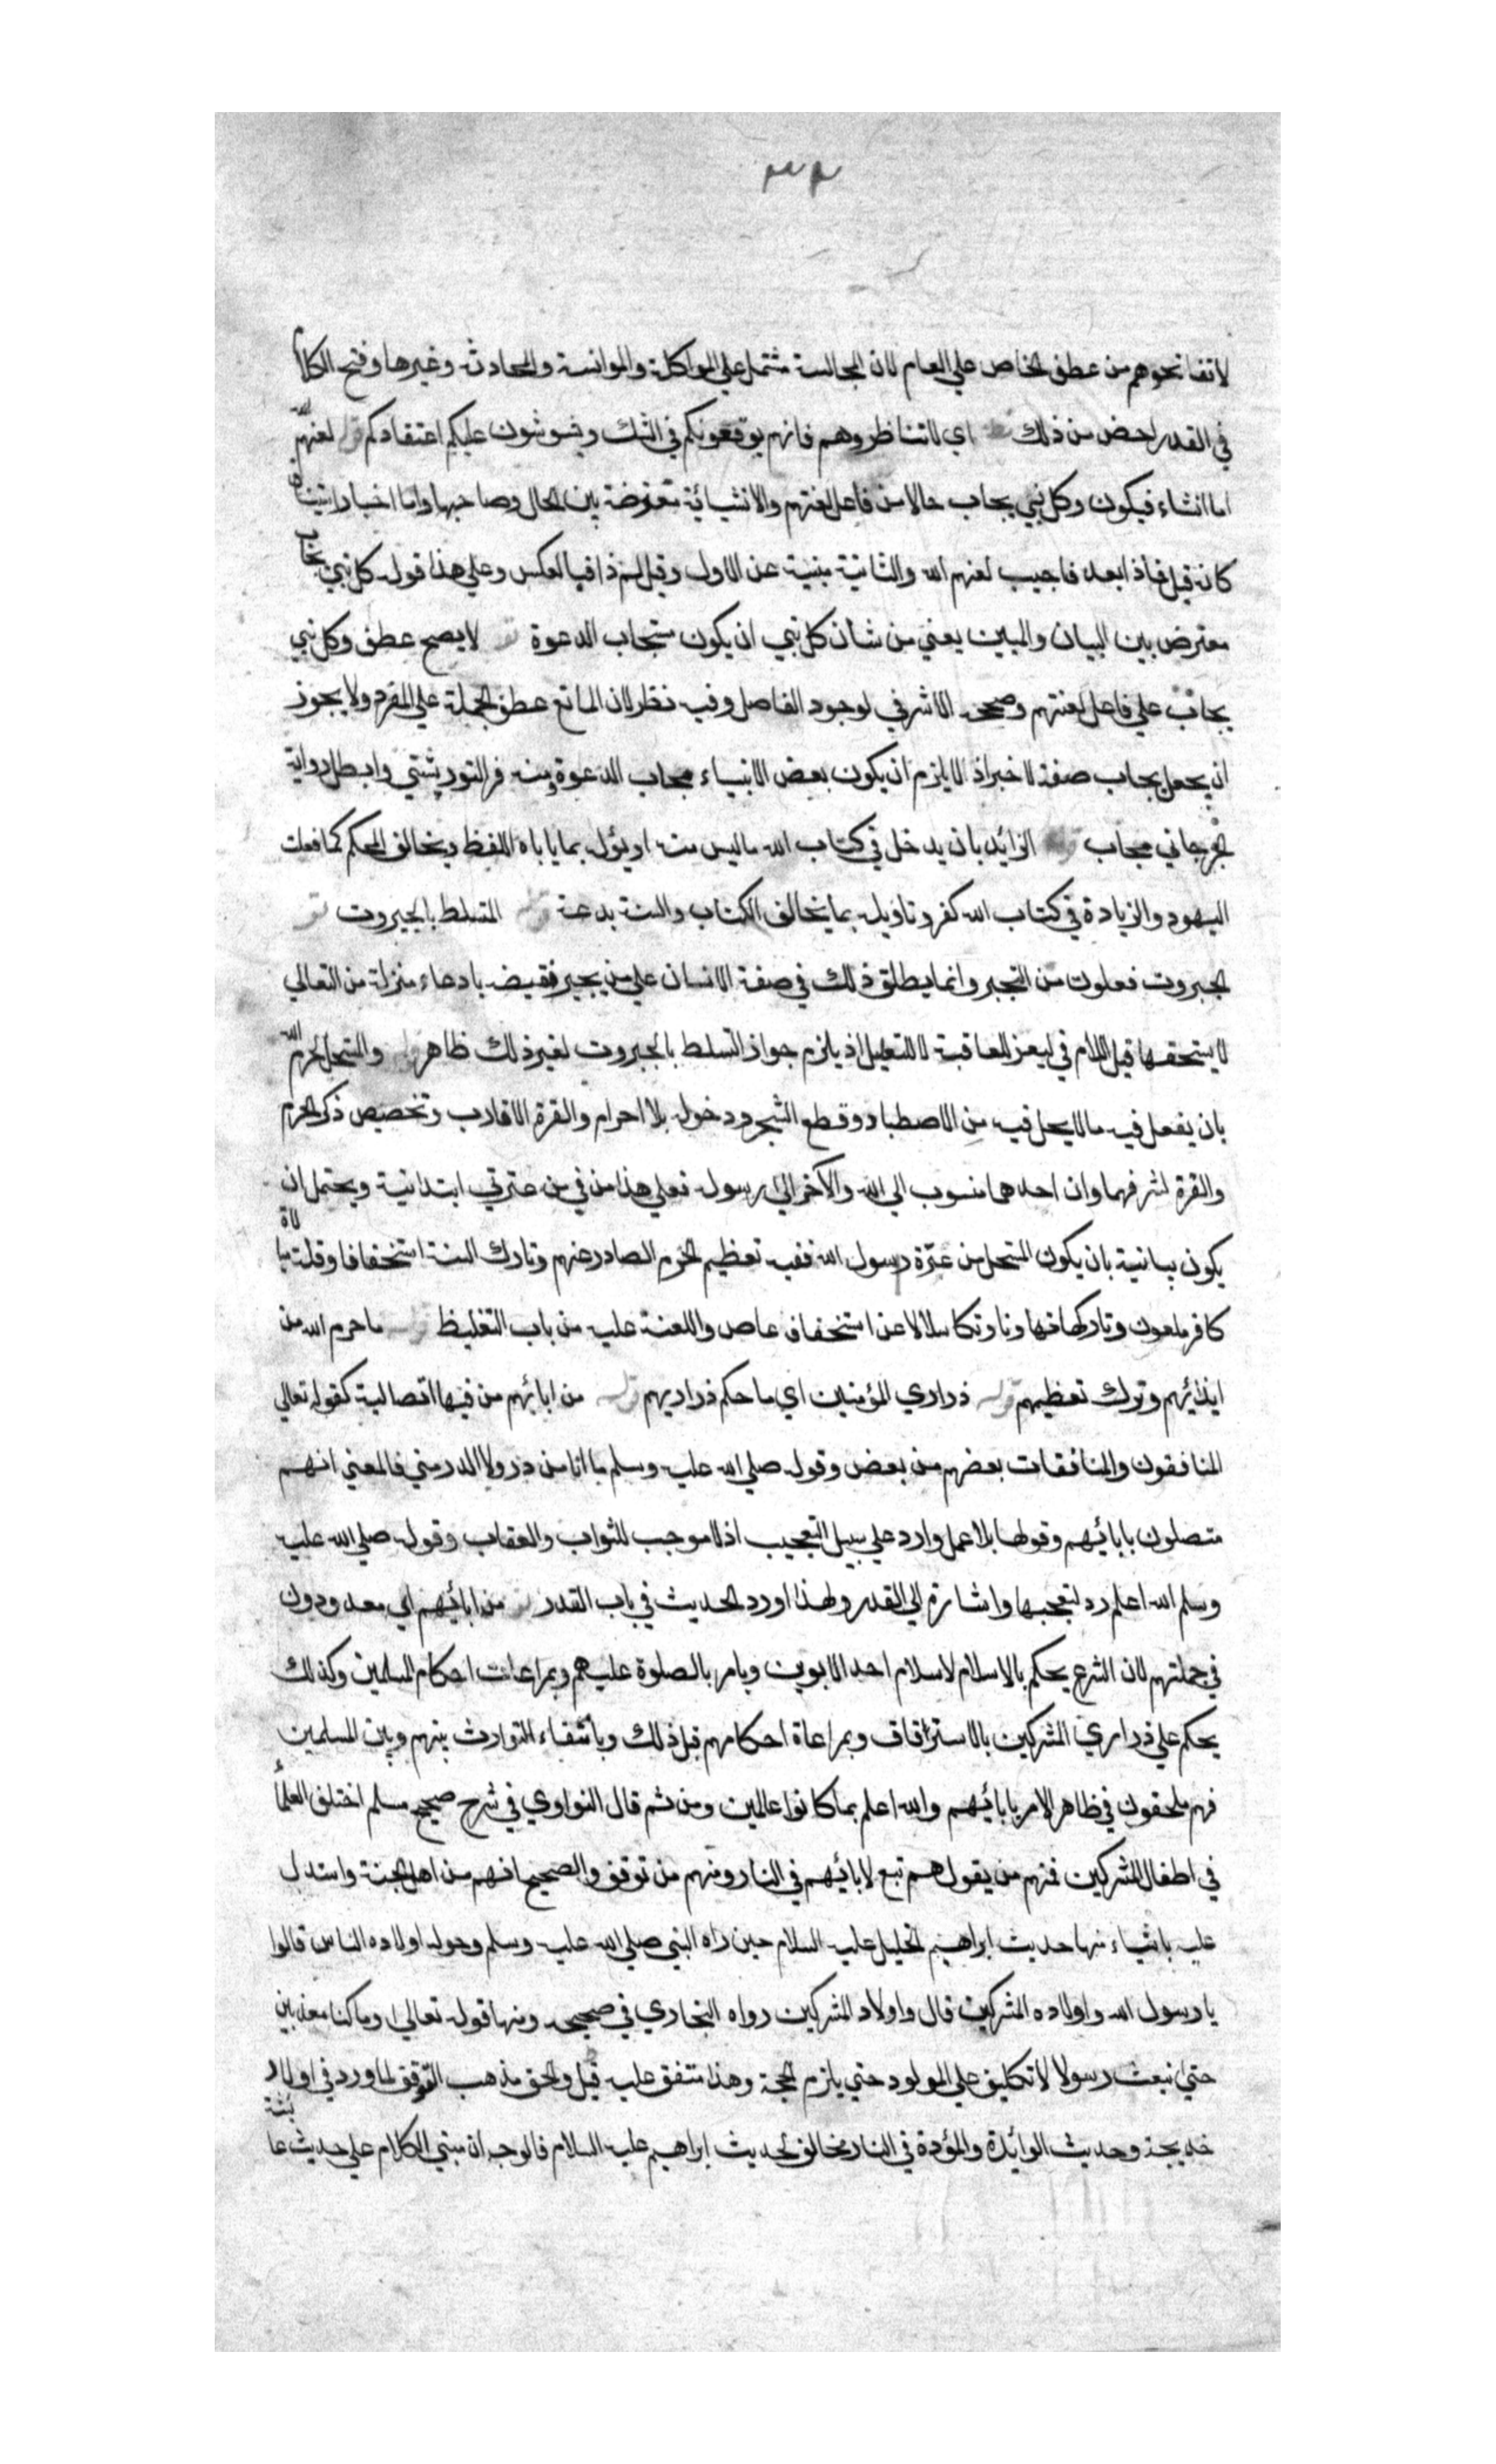 ٣٣
لا تفاتحوهم من عطف الخاص علي العام لان المجالسة مشتمل علي المواكلة والموانسة والمحادثة وغيرها وفتح الكلام
في القدر اخص من ذلك اي لا تناظروهم فانهم يوقعونكم في الشك ويشوشون عليكم اعتقادكم قوله لعنهم الله
اما انشاء فيكون وكل نبي يجاب حالا من فاعل لعنتهم والانشائية معترضة بين الحال وصاحبها واما اخبار استيناف
كانه قيل فماذا بعد فاجيب لعنهم الله والثانية مبنية عن الاول وقيل لم ذا فبالعكس وعلي هذا قوله كل نبي يجاب
معترض بين البيان والمبين يعني من شان كل نبي ان يكون مستجاب الدعوة لا يصح عطف وكل نبي
يجاب علي فاعل لعنتهم وصححه الاشرفي لوجود الفاصل وفيه نظر لان المانع عطف الجملة علي المفرد ولا يجوز
ان يجعل يجاب صفة لا خبرا اذ لا يلزم ان يكون بعض الانبياء مجاب الدعوة ومنه فر التوربشتي وابطل رواية
الجرجاني مجاب قوله الزائد بان يدخل في كتاب الله ما ليس منه او يؤل بما ياباه اللفظ ويخالف المحكم كما فعلت
اليهود والزيادة في كتاب الله كفر وتاويله بما يخالف الكتاب والسنة بدعة قوله المتسلط بالجبروت
الجبروت فعلوت من التجبر وانما يطلق ذلك في صفة الانسان علي من يجبر نقيصة بادعاء منزلة من التعالي
لا يستحقها قيل اللام في ليعز للعاقبة لا للتعليل اذ يلزم جواز التسلط بالجبروت لغير ذلك ظاهرا والمستحل لحرم الله
بان يفعل فيه ما لا يحل فيه من الاصطياد وقطع الشجر ودخوله بلا احرام والقرة الاقارب وتخصيص ذكر الحرم
والقرة لشرفهما وان احدهما منسوب الي الله والآخر الي رسوله فعلي هذا من في من عترتي ابتدائية ويحتمل ان
يكون بيانية بان يكون المستحل من عترة رسول الله ففيه تعظيم الجرم الصادر عنهم وتارك السنة استخفافا وقلة مبالاة
كافر ملعون وتاركها تهاونا وتكاسلا لا عن استخفاف عاص واللعنة عليه من باب التغليظ قوله ما حرم الله من
ايذائهم وترك تعظيمهم قوله ذراري المؤمنين اي ما حكم ذراريهم قوله من ابائهم من فيها اتصالية كقوله تعالي
المنافقون والمنافقات بعضهم من بعض وقوله صلي الله عليه وسلم ما انا من دد ولا الدد مني فالمعني انهم
متصلون بابائهم وقولها بلا عمل وارد علي سبيل التعجيب اذ لا موجب للثواب والعقاب وقوله صلي الله عليه
وسلم الله اعلم رد لتعجبها واشارة الي القدر ولهذا اورد الحديث في باب القدر من ابائهم اي معدودون
في جملتهم لان الشرع يحكم بالاسلام لاسلام احد الابوين ويامر بالصلوة عليهم وبمراعات احكام المسلمين وكذلك
يحكم علي ذراري المشركين بالاسترقاق وبمراعاة احكامهم قبل ذلك وبانتفاء التوارث بينهم وبين المسلمين
فهم ملحقون في ظاهر الامر بابائهم والله اعلم بما كانوا عاملين ومن ثم قال النواوي في شرح صحيح مسلم اختلف العلماء
في اطفال المشركين فمنهم من يقول هم تبع لابائهم في النار ومنهم من توقف والصحيح انهم من اهل الجنة واستدل
عليه باشياء منها حديث ابراهيم الخليل عليه السلام حين راه النبي صلي الله عليه وسلم وحوله اولاده الناس قالوا
يا رسول الله واولاده المشركين قال واولاد المشركين رواه البخاري في صحيحه ومنها قوله تعالي وما كنا معذبين
حتي نبعث رسولا لا تكليف علي المولود حتي يلزم الحجة وهذا متفق عليه قيل والحق مذهب التوقف لما ورد في اولاد
خديجة وحديث الوائدة والمؤدة في النار مخالف لحديث ابراهيم عليه السلام فالوجه ان مبني الكلام علي حديث عائشة